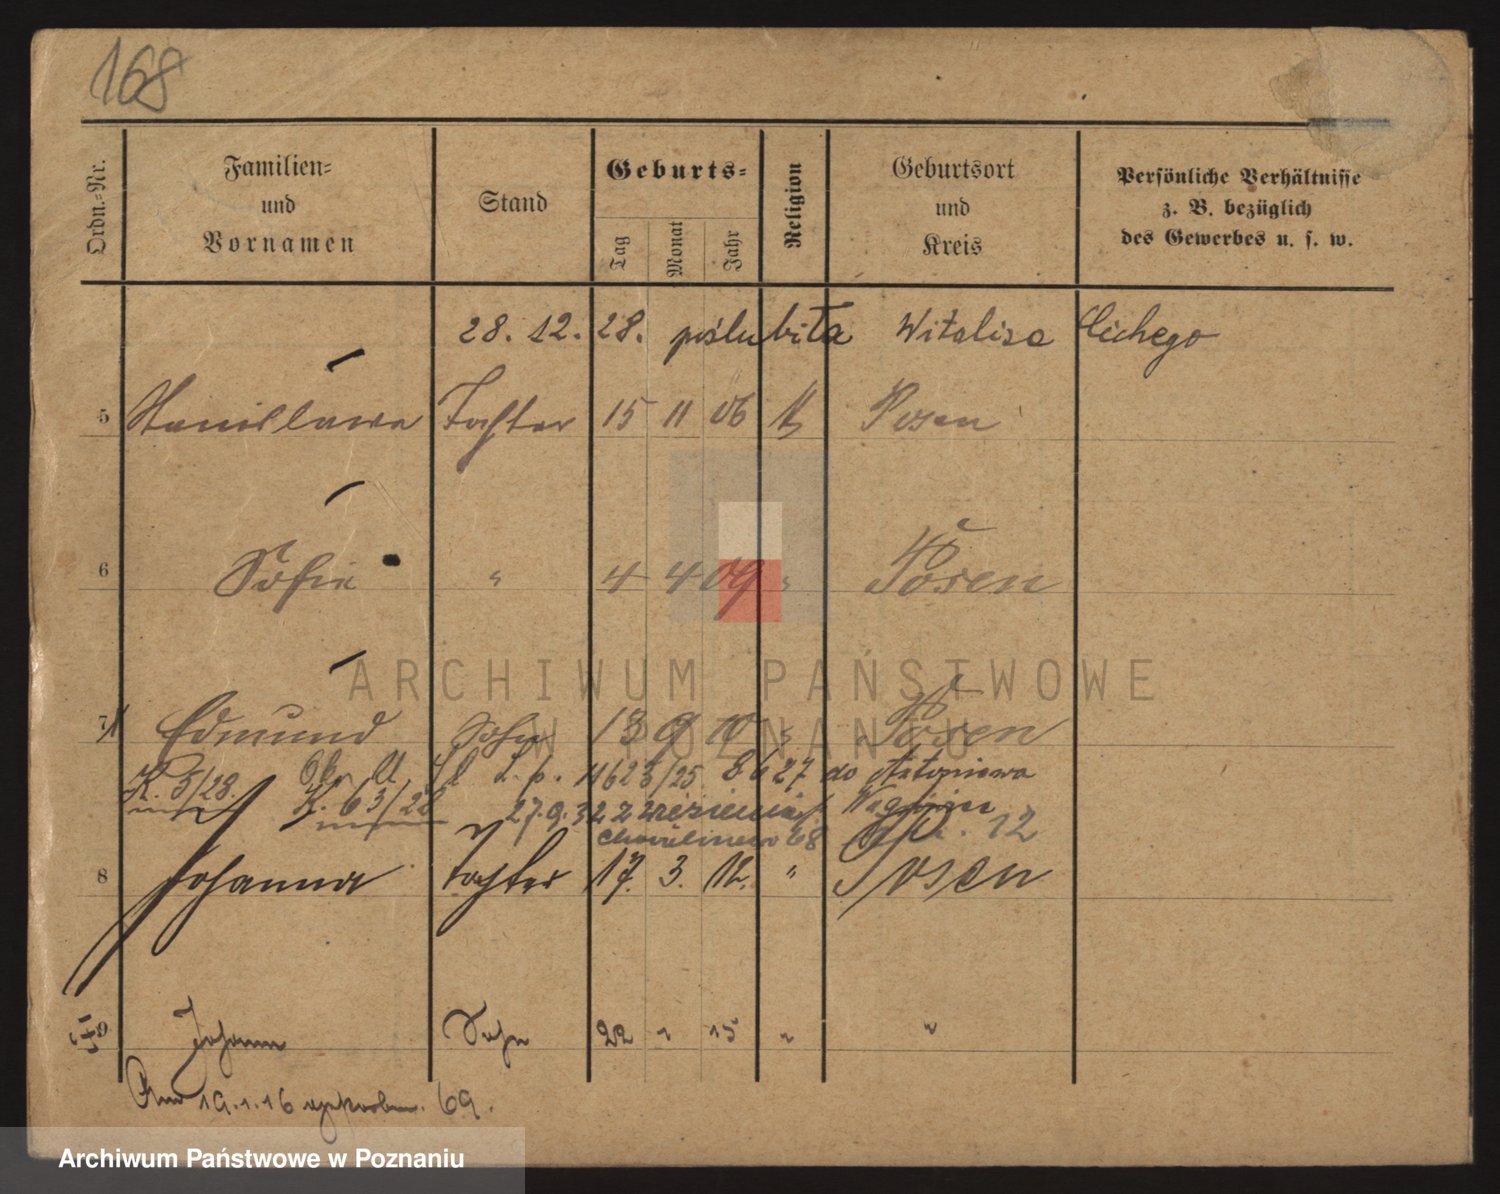 168
Ordn.-Nr.
Familien-
und
Vornamen
Stand
Geburts-
Tag
Monat
Jahr
Religion
Geburtsort
und
Kreis
Persönliche Verhältnisse
z. B. bezüglich
des Gewerbes u. s. w.
28. 12. 28. poślubiła Witalisa Cichego
5 Stanislawa Tochter 15 11 06 K Posen
6 Sofie " 4 4 09 " Posen
7 Edmund Sohn 13 9 10 " Posen
K. 5/28. L. p. 11623/25 8 6 27 do Antoniewa
K. 63/28 27.9.32 z więzienia
12
8 Johanna Tochter 17. 3. 12. " Posen
9 Johann Sohn 22 1 15 " "
Am 19.1.16 verstorben. 69.
ARCHIWUM PAŃSTWOWE
W POZNANIU
Archiwum Państwowe w Poznaniu